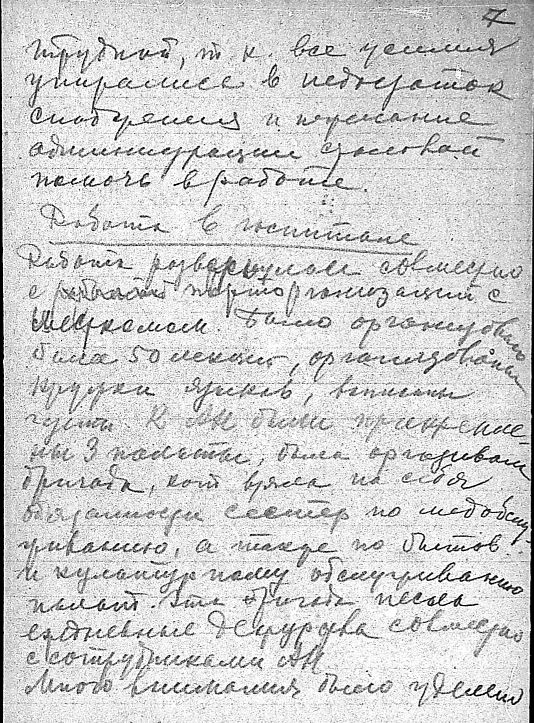 7
трудной, т к. все усилия
упирались в недостаток
снабжения и нежелание
администрации столовой
помочь в работе.
Работа в госпитале
Работа развернулась совместно
с работой парторганизации с
Месткомом. Было организовано
более 50 лекций, организованы
кружки языков, выписаны
газеты. К АН были прикрепле-
ны 3 палаты, была организована
бригада, кот взяла на себя
обязанности сестер по медобслу-
живанию, а также по бытов.
и культурному обслуживанию
палат. Эта бригада несла
ежедневные дежурства совместно
с сотрудниками АН
Много внимания было уделено